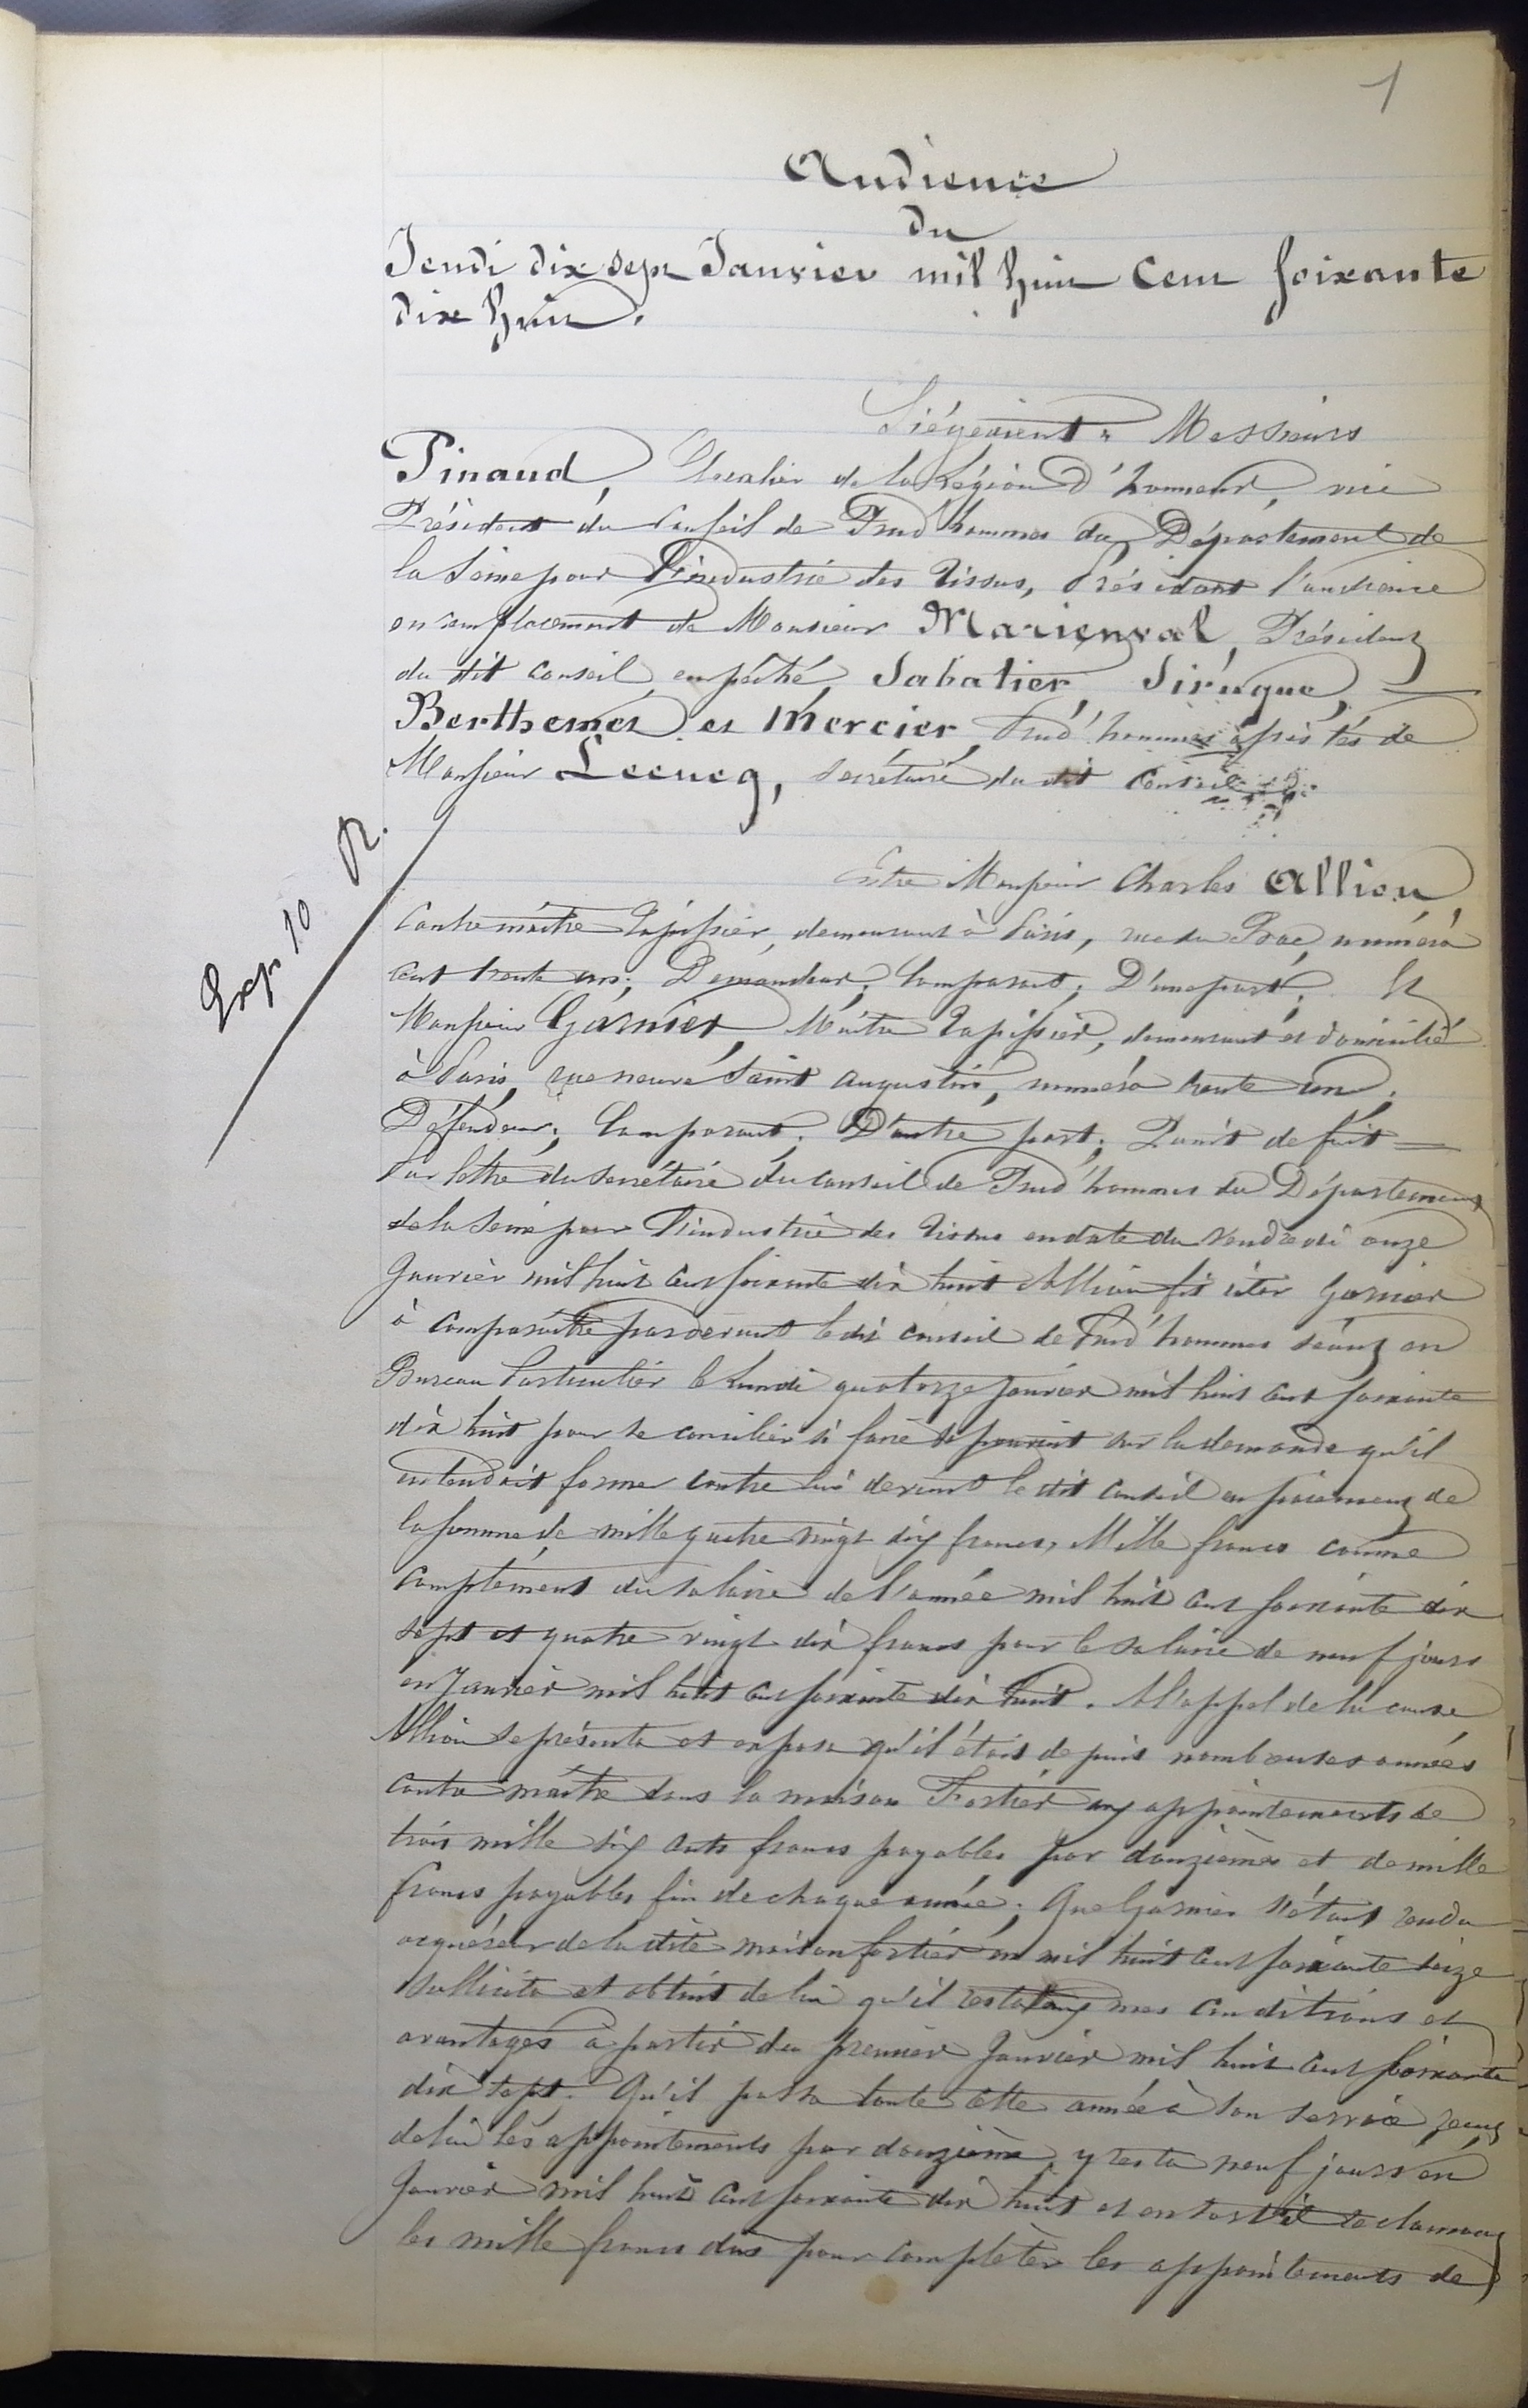 1
Audience
du
Jeudi dix sept Janvier mil huit cent soixante
dix huit.
Siégeaient : Messieurs
Pinaud, Chevalier de la Légion d'honneur, vice
Président du Conseil de Prud'hommes du Département de
la Seine pour l'industrie des Tissus, Présidant l'audience
en remplacement de Monsieur Marienval, Président
du dit conseil empêché, Sabatier, Sirugue,
Berthemet et Mercier, Prud'hommes assistés de
Monsieur Lecucq, secrétaire du dit Conseil.
Exp. 10 R.
Entre Monsieur Charles Allion,
contremaître tapissier, demeurant à Paris, rue du Bac, numéro
cent trente un; Demandeur; Comparant; D'une part; Et
Monsieur Garnier, Maître Tapissier, demeurant et domicilié
à Paris, rue neuve Saint Augustin, numéro trente un;
Défendeur; Comparant; D'autre part; Point de fait =
Par lettre du secrétaire du Conseil de Prud'hommes du Département
de la Seine pour l'industrie des Tissus en date du vendredi onze
Janvier mil huit cent soixante dix huit Allion fit citer Garnier
à comparaître pardevant le dit conseil de Prud'hommes séant en
Bureau Particulier le Lundi quatorze Janvier mil huit cent soixante
dix huit pour se concilier si faire se pouvait sur la demande qu'il
entendait former contre lui devant le dit Conseil en paiement de
la somme de mille quatre vingt dix francs, Mille francs comme
complément du salaire de l'année mil huit cent soixante dix
sept et quatre vingt dix francs pour le salaire de neuf jours
en Janvier mil huit cent soixante dix huit. A l'appel de la cause
Allion se présenta et exposa qu'il était depuis nombreuses années
contre maître dans la maison Fortier aux appointements de
trois mille six cents francs payables par douzièmes et de mille
francs payables fin de chaque année; Que Garnier s'étant rendu
acquéreur de la dite maison Fortier en mil huit cent soixante seize
sollicita et obtint de lui qu'il resta aux mes conditions et
avantages à partir du premier Janvier mil huit cent soixante
dix sept. Qu'il passa toute cette année à son service reçut
de lui les appointements par douzième, y resta neuf jours en
Janvier mil huit cent soixante dix huit et en sortit réclamant
les mille francs dus pour compléter les appointements de